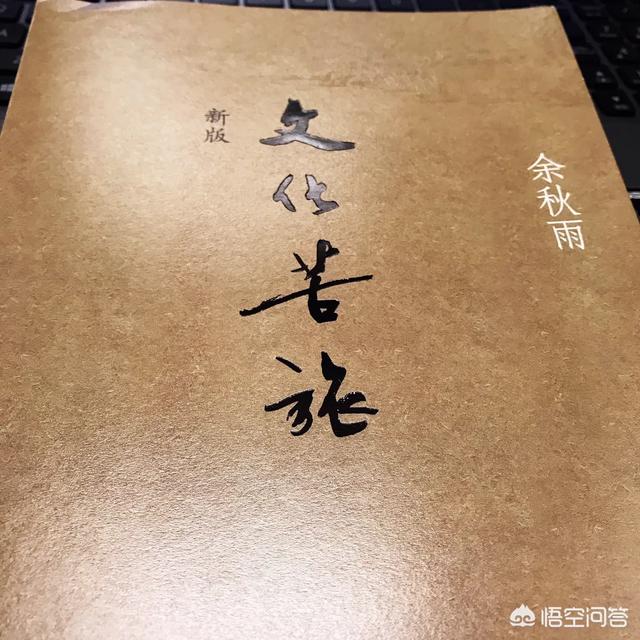 余秋雨
文化苦旅
新版
悟空问答